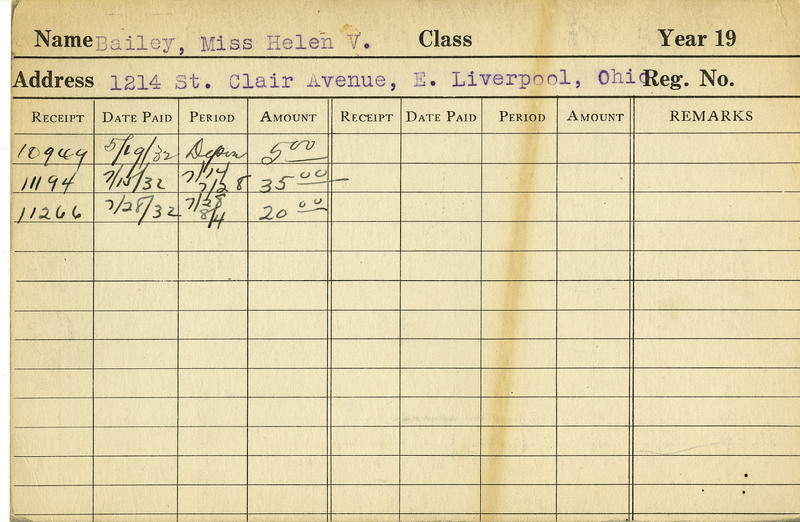 Name Bailey, Miss Helen V. Class Year 19
Address 1214 St. Clair Avenue, E. Liverpool, Ohio Reg. No.
RECEIPT DATE PAID PERIOD AMOUNT RECEIPT DATE PAID PERIOD AMOUNT REMARKS
10949 5/19/32 5 00
11194 7/15/32 7/14 7/28 35 00
11266 7/28/32 7/28 8/4 20 00